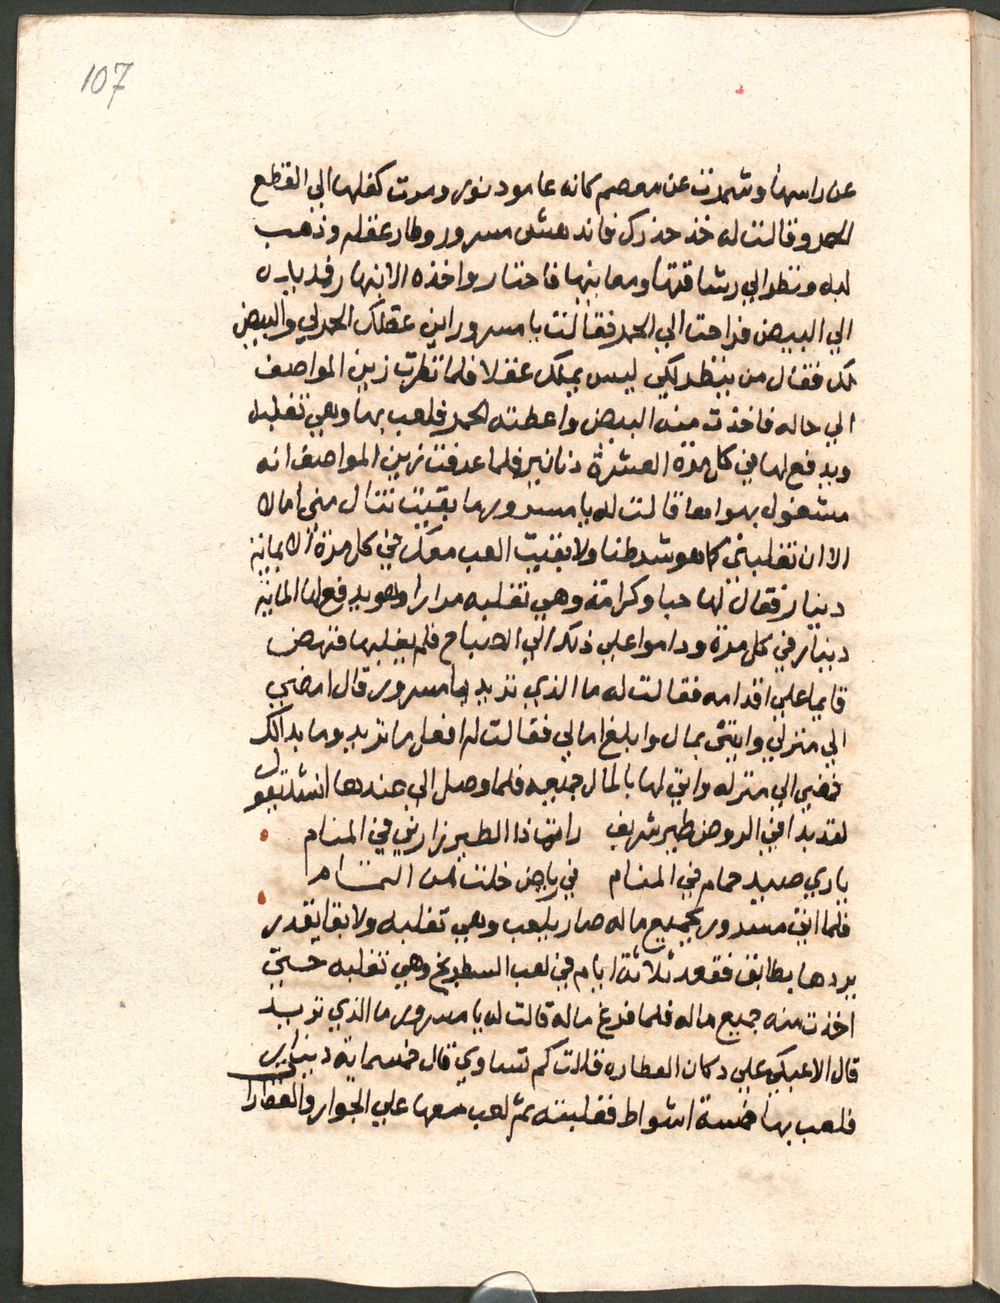 107
عن راسها وشمرت عن معصم كانه عامود نور ومرت كفلها الي القطع
الحمر وقالت له خذ حذرك فاندهش مسرور وطار عقله وذهب
لبه ونظر الي رشاقتها ومعانيها فاحتار واخذه الانبهار فمد يده
الي البيض فراحت الي الحمر فقالت يا مسرور اين عقلك الحمر لي والبيض
لك فقال من ينظر لكي ليس يملك عقلا فلما نظرت زين المواصف
الي حاله فاخذت منه البيض واعطته الحمر فلعب بها وهي تغلبه
ويدفع لها في كل مرة العشرة دنانير فلما عرفت زين المواصف انه
مشغول بهواها قالت له يا مسرور ما بقيت تنال مني امالا
الا ان تغلبني كما هو شرطنا ولا بقيت العب معك في كل مرة الا بماية
دينار فقال لها حبا وكرامة وهي تغلبه مرارا وهو يدفع لها الماية
دينار في كل مرة وداموا علي ذلك الي الصباح فلم يغلبها فنهض
قايما علي اقدامه فقالت له ما الذي تريد يا مسرور قال امضي
الي منزلي واتي بمال وابلغ امالي فقالت له افعل ما تريد وما بدالك
فمضي الي منزله واتي لها بالمال جميعه فلما وصل الي عندها انشد يقول
لقد بدا في الروض طير شريف رايت ذا الطير زارني في المنام
بادي صيد حمام في المنام في رياض خلت من التمام
فلما اتي مسرور بجميع ماله صار يلعب وهي تغلبه ولا بقا يقدر
يردها بطابق فقعد ثلاثة ايام في لعب السطرنج وهي تغلبه حتي
اخذت منه جميع ماله فلما فرغ ماله قالت له يا مسرور ما الذي تريد
قال الاعبكي علي دكان العطاره قالت كم تساوي قال خمسماية دينار
فلعب بها خمسة اشواط فغلبته ثم لعب معها علي الجوار والعقارا